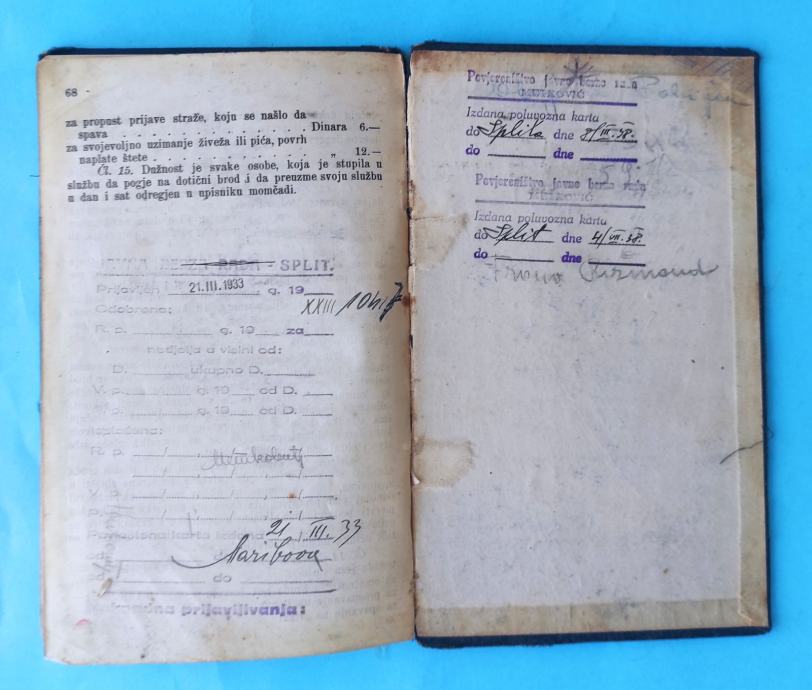 68 -
za propust prijave straže, koju se našlo da
spava . . . . . . . . . . . . . Dinara 6.—
za svojevoljno uzimanje živeža ili pića, povrh
naplate štete . . . . . . . . . . „ 12.—
Čl. 15. Dužnost je svake osobe, koja je stupila u
službu da pogje na dotični brod i da preuzme svoju službu
u dan i sat odregjen u upisniku momčadi.
BERZA RADA - SPLIT.
Prijavljen 21.III.1933 g. 19
XXIII
Odobrena:
R. p. g. 19 za
nedjelja a visini od:
D. ukupno D.
V. p. g. 19 od D.
p. g. 19 od D.
R. p.
V. p.
p.
karta izdana 21 / III. 33
do
Naknadna prijavljivanja:
Povjereništvo javne berze rada
METKOVIĆ
Izdana poluvozna karta
do Splita dne 8/III.38.
do dne
Povjereništvo javne berze rada
METKOVIĆ
Izdana poluvozna karta
do Split dne 4/VII.38.
do dne